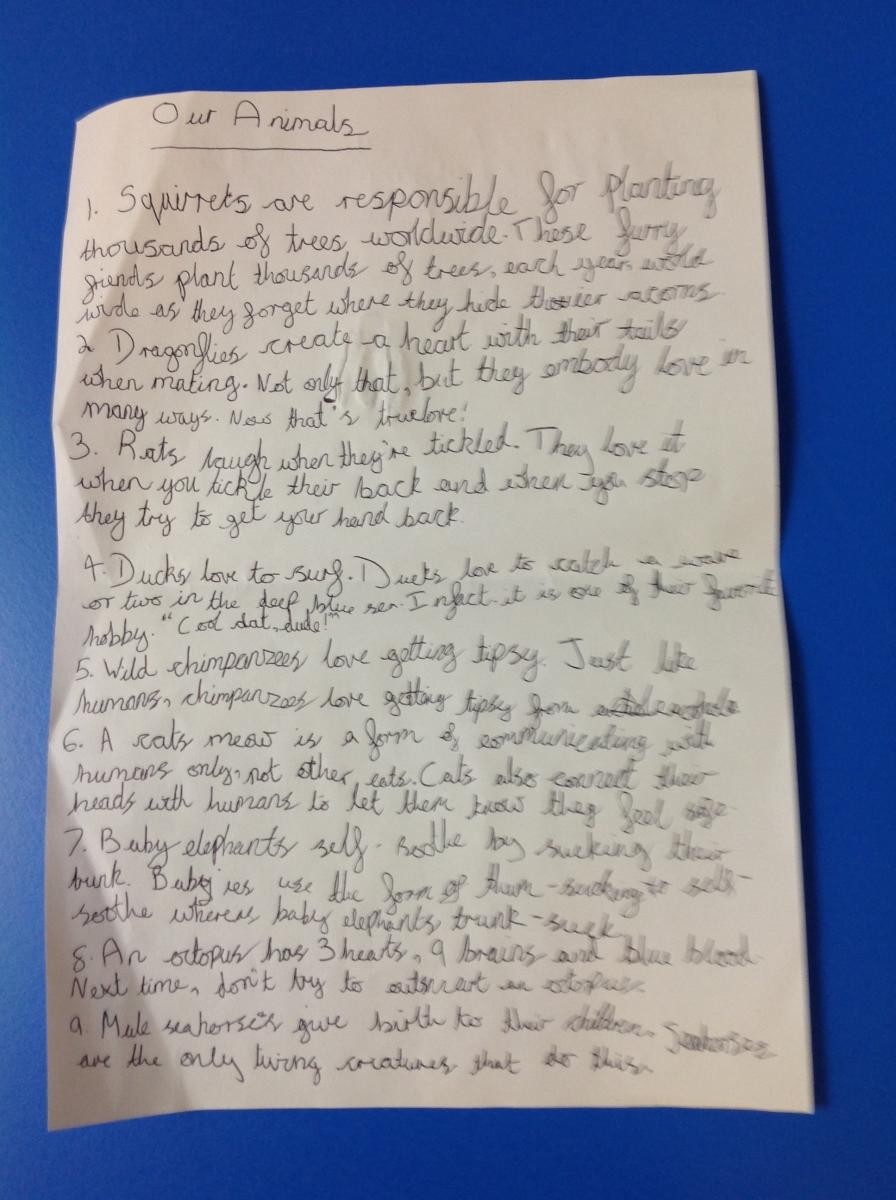 Our Animals
1. Squirrels are responsible for planting
thousands of trees worldwide. These furry
friends plant thousands of trees, each year, world
wide as they forget where they hide their acorns.
2 Dragonflies create a heart with their tails
when mating. Not only that, but they embody love in
many ways. Now that's truelove!
3. Rats laugh when they're tickled. They love it
when you tickle their back and when you stop
they try to get your hand back.
4. Ducks love to surf. Ducks love to catch a wave
or two in the deep blue sea. Infact it is one of their favorite
hobby. "Cool dat, dude!"
5. Wild chimpanzees love getting tipsy. Just like
humans, chimpanzees love getting tipsy from
6. A cats meow is a form of communicating with
humans only, not other cats. Cats also connect their
heads with humans to let them know they feel safe
7. Baby elephants self-soothe by sucking their
trunk. Baby ies use the form of thum-sucking to self-
soothe whereas baby elephants trunk-suck
8. An octopus has 3 hearts, 9 brains and blue blood.
Next time, don't try to outsmart an octopus.
9. Male seahorse's give birth to their children. Seahorses
are the only living creatures that do this.